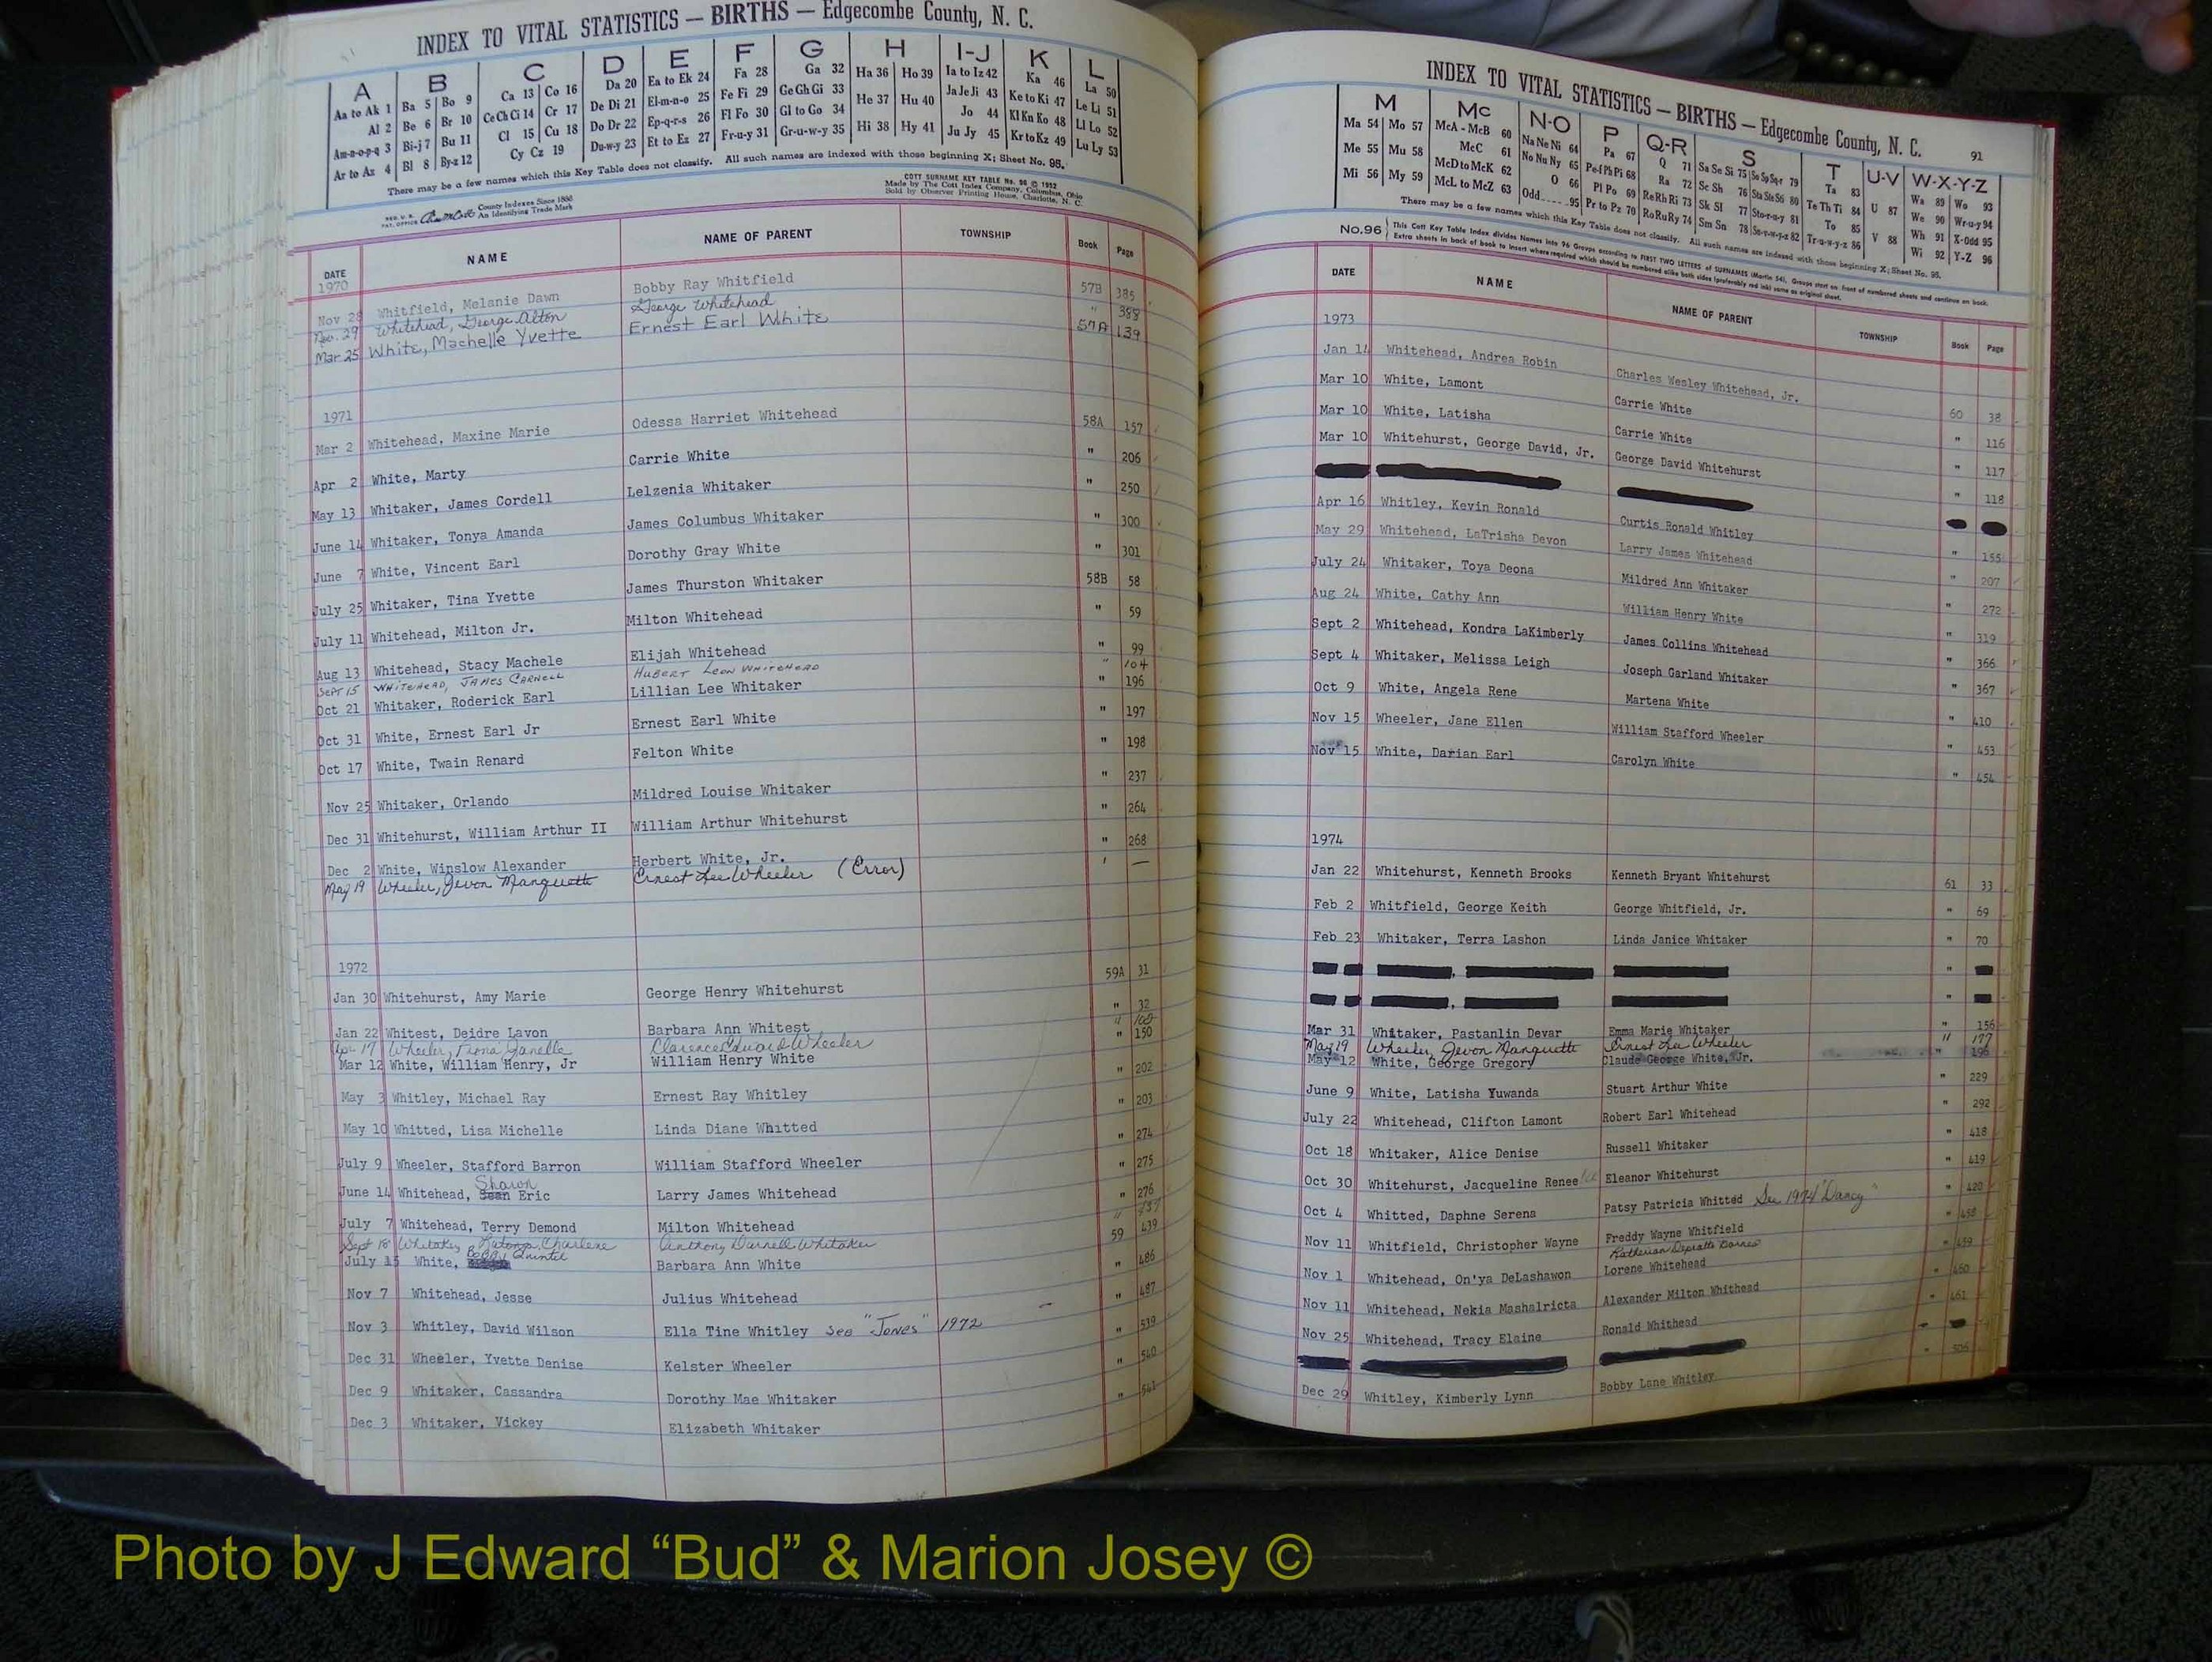 INDEX TO VITAL STATISTICS — BIRTHS — Edgecombe County, N. C.
A B C D E F G H I-J K L
Aa to Ak 1 Ba 5 Bo 9 Ca 13 Co 16 Da 20 Ea to Ek 24 Fa 28 Ga 32 Ha 36 Ho 39 Ia to Iz 42 Ka 46 La 50
Al 2 Be 6 Br 10 Ce Ch Ci 14 Cr 17 De Di 21 El-m-n-o 25 Fe Fi 29 Ge Gh Gi 33 He 37 Hu 40 Ja Je Ji 43 Ke to Ki 47 Le Li 51
Am-n-o-p-q 3 Bi-j 7 Bu 11 Cl 15 Cu 18 Do Dr 22 Ep-q-r-s 26 Fl Fo 30 Gl to Go 34 Hi 38 Hy 41 Jo 44 Kl Kn Ko 48 Ll Lo 52
Ar to Az 4 Bl 8 By-z 12 Cy Cz 19 Du-w-y 23 Et to Ez 27 Fr-u-y 31 Gr-u-w-y 35 Ju Jy 45 Kr to Kz 49 Lu Ly 53
There may be a few names which this Key Table does not classify. All such names are indexed with those beginning X; Sheet No. 96.
REG. U.S. PAT. OFFICE County Indexes Since 1888 An Identifying Trade Mark
COTT SURNAME KEY TABLE No. 96 © 1952
Made by The Cott Index Company, Columbus, Ohio
Sold by Observer Printing House, Charlotte, N. C.
DATE NAME NAME OF PARENT TOWNSHIP Book Page
1970
Nov 28 Whitfield, Melanie Dawn Bobby Ray Whitfield 57B 385
Nov. 29 Whitehead, George Alton George Whitehead " 388
Mar 25 White, Machelle Yvette Ernest Earl White 57A 139
1971
Mar 2 Whitehead, Maxine Marie Odessa Harriet Whitehead 58A 157
Apr 2 White, Marty Carrie White " 206
May 13 Whitaker, James Cordell Lelzenia Whitaker " 250
June 14 Whitaker, Tonya Amanda James Columbus Whitaker " 300
June 7 White, Vincent Earl Dorothy Gray White " 301
July 25 Whitaker, Tina Yvette James Thurston Whitaker 58B 58
July 11 Whitehead, Milton Jr. Milton Whitehead " 59
Aug 13 Whitehead, Stacy Machele Elijah Whitehead " 99
Sept 15 Whitehead, James Carnell Hubert Leon Whitehead " 104
Oct 21 Whitaker, Roderick Earl Lillian Lee Whitaker " 196
Oct 31 White, Ernest Earl Jr Ernest Earl White " 197
Oct 17 White, Twain Renard Felton White " 198
Nov 25 Whitaker, Orlando Mildred Louise Whitaker " 237
Dec 31 Whitehurst, William Arthur II William Arthur Whitehurst " 264
Dec 2 White, Winslow Alexander Herbert White, Jr. " 268
May 19 Wheeler, Jevon Manquette Ernest Lee Wheeler (Error) ' —
1972
Jan 30 Whitehurst, Amy Marie George Henry Whitehurst 59A 31
Jan 22 Whitest, Deidre Lavon Barbara Ann Whitest " 32
Apr 17 Wheeler, Janelle Clarence Edward Wheeler "
Mar 12 White, William Henry, Jr William Henry White " 150
May 3 Whitley, Michael Ray Ernest Ray Whitley " 202
May 10 Whitted, Lisa Michelle Linda Diane Whitted " 203
July 9 Wheeler, Stafford Barron William Stafford Wheeler " 274
June 14 Whitehead, Sean Shawn Eric Larry James Whitehead " 275
July 7 Whitehead, Terry Demond Milton Whitehead " 276
Sept 18 Whitaker, Latonya Charlene Anthony Darnell Whitaker "
July 15 White, Bobby Quintel Barbara Ann White 59 439
Nov 7 Whitehead, Jesse Julius Whitehead " 486
Nov 3 Whitley, David Wilson Ella Tine Whitley See "Jones" 1972 " 487
Dec 31 Wheeler, Yvette Denise Kelster Wheeler " 539
Dec 9 Whitaker, Cassandra Dorothy Mae Whitaker " 540
Dec 3 Whitaker, Vickey Elizabeth Whitaker " 541
INDEX TO VITAL STATISTICS — BIRTHS — Edgecombe County, N. C. 91
M Mc N-O P Q-R S T U-V W-X-Y-Z
Ma 54 Mo 57 McA - McB 60 Na Ne Ni 64 Pa 67 Q 71 Sa Se Si 75 So Sp Sq-r 79 Ta 83 U 87 Wa 89 Wo 93
Me 55 Mu 58 McC 61 No Nu Ny 65 Pe-f Ph Pi 68 Ra 72 Sc Sh 76 Sta Ste Sti 80 Te Th Ti 84 V 88 We 90 Wr-u-y 94
Mi 56 My 59 McD to McK 62 O 66 Pl Po 69 Re Rh Ri 73 Sk Sl 77 Sto-r-u-y 81 To 85 Wh 91 X-Odd 95
McL to McZ 63 Odd 95 Pr to Pz 70 Ro Ru Ry 74 Sm Sn 78 Su-v-w-y-z 82 Tr-u-w-y-z 86 Wi 92 Y-Z 96
There may be a few names which this Key Table does not classify. All such names are indexed with those beginning X; Sheet No. 96.
No. 96 This Cott Key Table Index divides Names into 96 Groups according to FIRST TWO LETTERS of SURNAMES (Martin 54). Groups start on front of numbered sheets and continue on back.
Extra sheets in back of book to insert where required which should be numbered alike both sides (preferably red ink) same as original sheet.
DATE NAME NAME OF PARENT TOWNSHIP Book Page
1973
Jan 14 Whitehead, Andrea Robin Charles Wesley Whitehead, Jr. 60 38
Mar 10 White, Lamont Carrie White " 116
Mar 10 White, Latisha Carrie White " 117
Mar 10 Whitehurst, George David, Jr. George David Whitehurst " 118
Apr 16 Whitley, Kevin Ronald Curtis Ronald Whitley " 155
May 29 Whitehead, LaTrisha Devon Larry James Whitehead " 207
July 24 Whitaker, Toya Deona Mildred Ann Whitaker " 272
Aug 24 White, Cathy Ann William Henry White " 319
Sept 2 Whitehead, Kondra LaKimberly James Collins Whitehead " 366
Sept 4 Whitaker, Melissa Leigh Joseph Garland Whitaker " 367
Oct 9 White, Angela Rene Martena White " 410
Nov 15 Wheeler, Jane Ellen William Stafford Wheeler " 453
Nov 15 White, Darian Earl Carolyn White " 454
1974
Jan 22 Whitehurst, Kenneth Brooks Kenneth Bryant Whitehurst 61 33
Feb 2 Whitfield, George Keith George Whitfield, Jr. " 69
Feb 23 Whitaker, Terra Lashon Linda Janice Whitaker " 70
, "
, "
Mar 31 Whitaker, Pastanlin Devar Emma Marie Whitaker " 156
May 19 Wheeler, Jevon Manquette Ernest Lee Wheeler " 177
May 12 White, George Gregory Claude George White, Jr. " 196
June 9 White, Latisha Yuwanda Stuart Arthur White " 229
July 22 Whitehead, Clifton Lamont Robert Earl Whitehead " 292
Oct 18 Whitaker, Alice Denise Russell Whitaker " 418
Oct 30 Whitehurst, Jacqueline Renee Eleanor Whitehurst " 419
Oct 4 Whitted, Daphne Serena Patsy Patricia Whitted See 1974 "Dancy" " 420
Nov 11 Whitfield, Christopher Wayne Freddy Wayne Whitfield " 458
Barnes
Nov 1 Whitehead, On'ya DeLashawn Lorene Whitehead " 459
Nov 11 Whitehead, Nekia Mashalricta Alexander Milton Whithead " 460
Nov 25 Whitehead, Tracy Elaine Ronald Whithead " 461
Dec 29 Whitley, Kimberly Lynn Bobby Lane Whitley " 505
Photo by J Edward “Bud” & Marion Josey ©